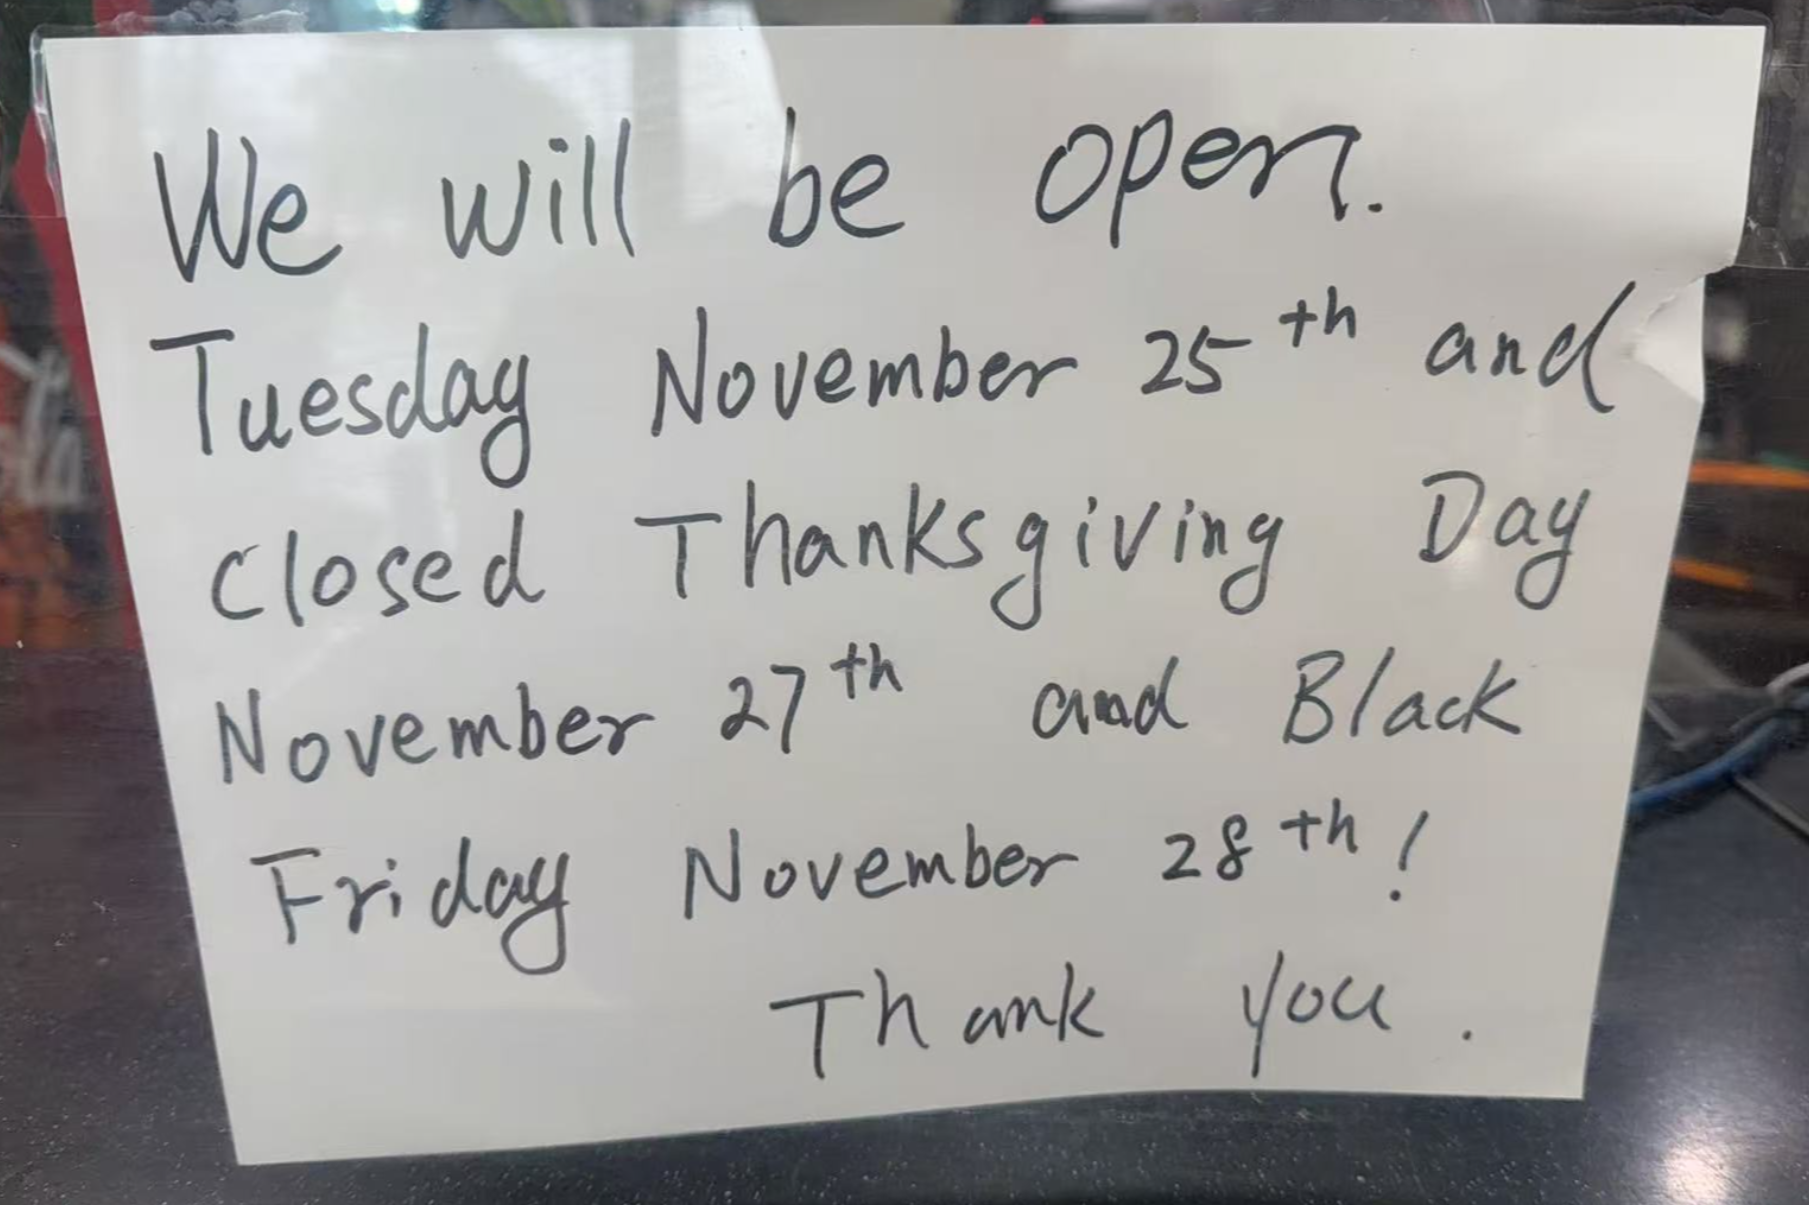 We will be open.
Tuesday November 25th and
closed Thanksgiving Day
November 27th and Black
Friday November 28th!
Thank you.